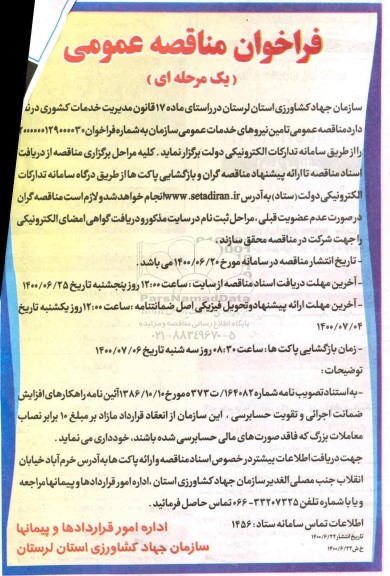 فراخوان مناقصه عمومی
( یک مرحله ای )
سازمان جهاد کشاورزی استان لرستان در راستای ماده ۱۷ قانون مدیریت خدمات کشوری در نظ
دارد مناقصه عمومی تامین نیروهای خدمات عمومی سازمان به شماره فراخوان
را از طریق سامانه تدارکات الکترونیکی دولت برگزار نماید . کلیه مراحل برگزاری مناقصه از دریافت
اسناد مناقصه تا ارائه پیشنهاد مناقصه گران و بازگشایی پاکت ها از طریق درگاه سامانه تدارکات
الکترونیکی دولت (ستاد) به آدرس www.setadiran.ir انجام خواهد شد و لازم است مناقصه گران
در صورت عدم عضویت قبلی ، مراحل ثبت نام در سایت مذکور و دریافت گواهی امضای الکترونیکی
را جهت شرکت در مناقصه محقق سازند .
- تاریخ انتشار مناقصه در سامانه مورخ ۱۴۰۰/۰۶/۲۰ می باشد .
- آخرین مهلت دریافت اسناد مناقصه از سایت : ساعت ۱۲:۰۰ روز پنجشنبه تاریخ ۱۴۰۰/۰۶/۲۵
ParsNamadData
- آخرین مهلت ارائه پیشنهاد و تحویل فیزیکی اصل ضمانتنامه : ساعت ۱۲:۰۰ روز یکشنبه تاریخ
پایگاه اطلاع رسانی مناقصه و مزایده
۱۴۰۰/۰۷/۰۴
۰۲۱-۸۸۳۴۹۶۷۰-۵
- زمان بازگشایی پاکت ها : ساعت ۰۸:۳۰ روز سه شنبه تاریخ ۱۴۰۰/۰۷/۰۶
توضیحات :
- به استناد تصویب نامه شماره ۱۶۴۰۸۲/ت۳۷۳ه مورخ ۱۳۸۶/۱۰/۱۰ آئین نامه راهکارهای افزایش
ضمانت اجرائی و تقویت حسابرسی ، این سازمان از انعقاد قرارداد مازاد بر مبلغ ۱۰ برابر نصاب
معاملات بزرگ که فاقد صورت های مالی حسابرسی شده باشند، خودداری می نماید .
جهت دریافت اطلاعات بیشتر در خصوص اسناد مناقصه و ارائه پاکت ها به آدرس خرم آباد خیابان
انقلاب جنب مصلی الغدیر سازمان جهاد کشاورزی استان ، اداره امور قراردادها و پیمانها مراجعه
و یا با شماره تلفن ۳۳۲۰۷۳۲۵-۰۶۶ تماس حاصل فرمائید .
اطلاعات تماس سامانه ستاد : ۱۴۵۶
تاریخ انتشار ۱۴۰۰/۶/۲۲
خ ش ۱۴۰۰/۶/۲۳
اداره امور قراردادها و پیمانها
سازمان جهاد کشاورزی استان لرستان